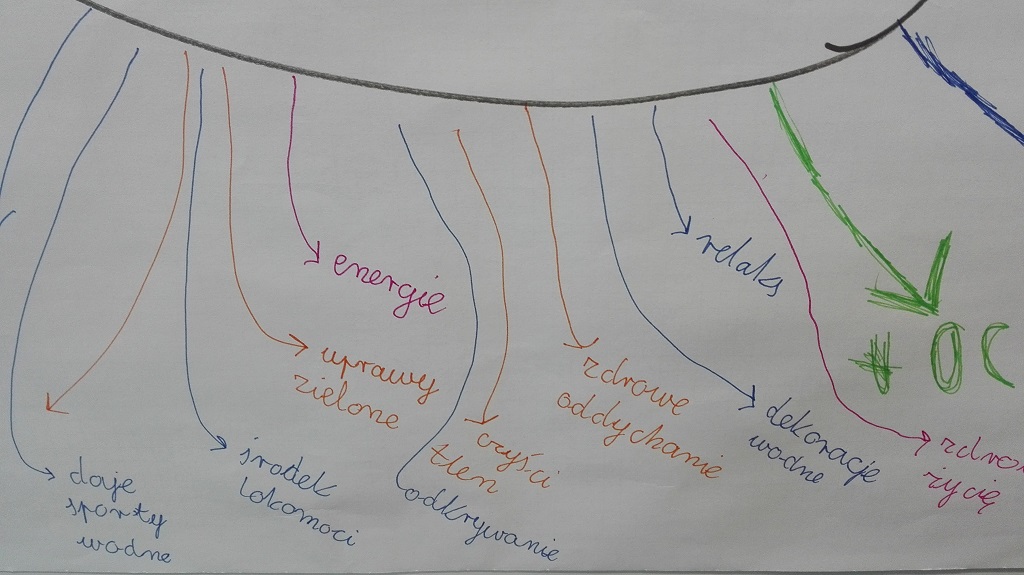 relaks
energię
# OC
uprawy
zielone
zdrowe
oddychanie
dekoracje
wodne
czyści
tlen
życię
środek
lokomoci
daje
sporty
wodne
odkrywanie